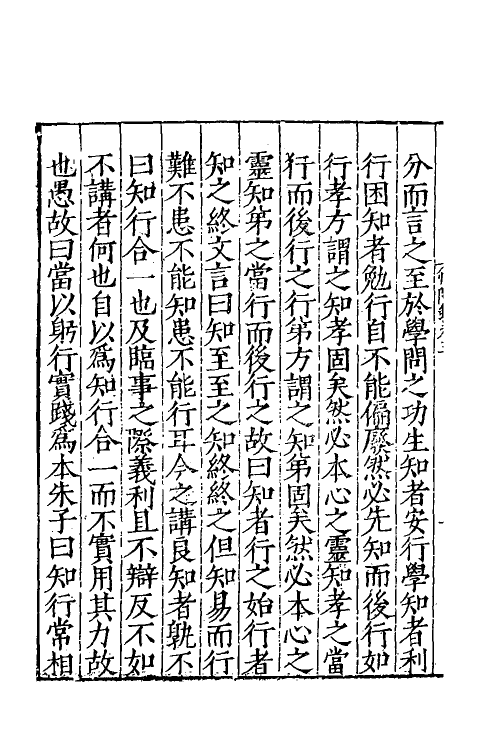 分而言之至於學問之功生知者安行學知者利
行困知者勉行自不能偏廢然必先知而後行如
行孝方謂之知孝固矣然必本心之靈知孝之當
行而後行之行弟方謂之知弟固矣然必本心之
靈知弟之當行而後行之故曰知者行之始行者
知之終文言曰知至至之知終終之但知易而行
難不患不能知患不能行耳今之講良知者孰不
曰知行合一也及臨事之際義利且不辯反不如
不講者何也自以爲知行合一而不實用其力故
也愚故曰當以躬行實踐爲本朱子曰知行常相